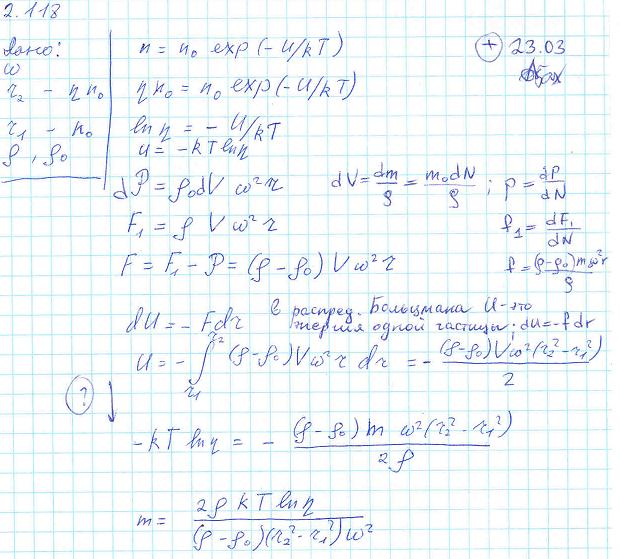 2.118
Дано:
ω
r₂ - ηn₀
r₁ - n₀
ρ, ρ₀
n = n₀ exp(-U/kT)
ηn₀ = n₀ exp(-U/kT)
ln η = - U/kT
u = -kT ln η
+ 23.03
dP = ρ₀dV ω² r
dV = dm/ρ = m₀dN/ρ ; p = dP/dN
F₁ = ρ V ω² r
f₁ = dF₁/dN
F = F₁ - P = (ρ - ρ₀) V ω² r
f = (ρ-ρ₀)m₀ω²r/ρ
dU = - Fdr
в распред. Больцмана U - это
энергия одной частицы; dU = -f dr
U = - ∫_{r₁}^{r₂} (ρ-ρ₀)Vω² r dr = - (ρ-ρ₀)Vω²(r₂²-r₁²)/2
?
-kT ln η = - (ρ-ρ₀) m ω²(r₂²-r₁²)/2ρ
m = 2ρ kT ln η/(ρ-ρ₀)(r₂²-r₁²)ω²